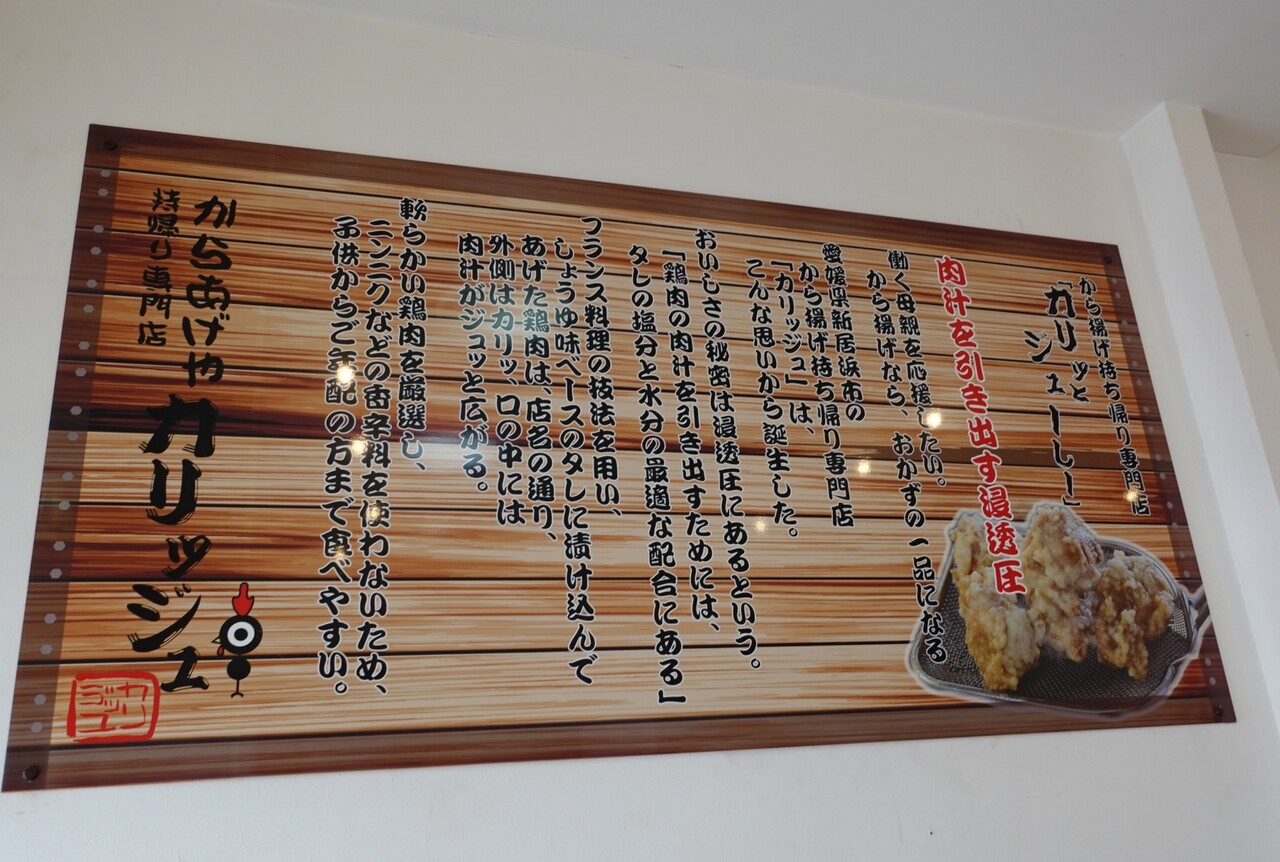 から揚げ持ち帰り専門店
「カリッと
ジューしー」
肉汁を引き出す浸透圧
働く母親を応援したい。
から揚げなら、おかずの一品になる
愛媛県新居浜市の
から揚げ持ち帰り専門店
「カリッジュ」は、
こんな思いから誕生した。
おいしさの秘密は浸透圧にあるという。
「鶏肉の肉汁を引き出すためには、
タレの塩分と水分の最適な配合にある」
フランス料理の技法を用い、
しょうゆ味ベースのタレに漬け込んで
あげた鶏肉は、店名の通り、
外側はカリッ、口の中には
肉汁がジュッと広がる。
軟らかい鶏肉を厳選し、
ニンニクなどの香辛料を使わないため、
子供からご年配の方まで食べやすい。
からあげや カリッジュ
持帰り専門店
カリ
ッジュ